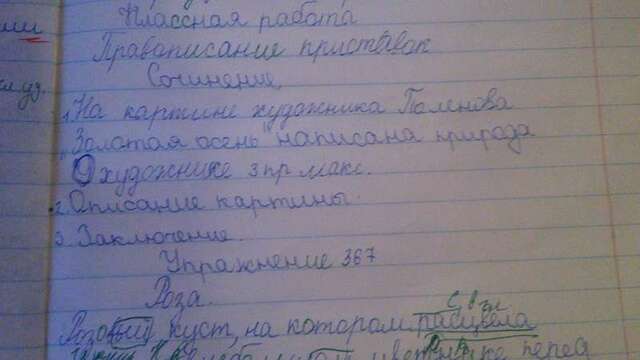 Классная работа
Правописание приставок
Сочинение.
1. На картине художника Поленова
„Золотая осень" написана природа
О художнике 3 пр макс.
2. Описание картины.
3. Заключение.
Упражнение 367
Роза.
Розовый куст, на котором расцвела
цветнике перед